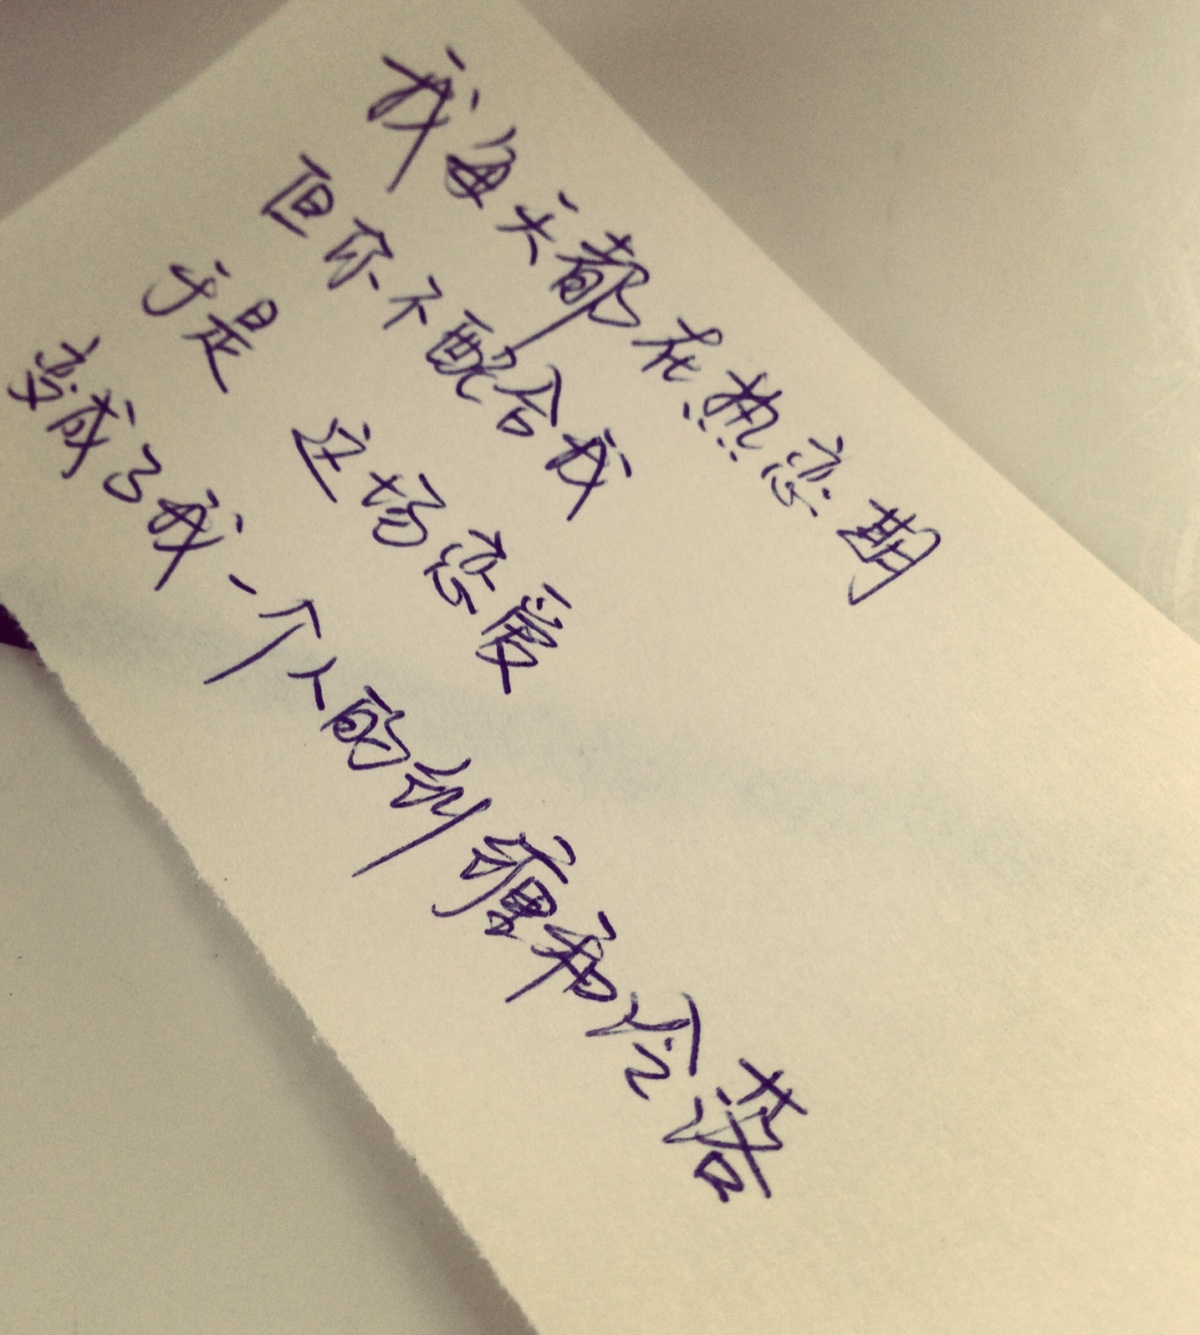 我每天都在热恋期
但你不配合我
于是 这场恋爱
变成了我一个人的到瘦和冷落